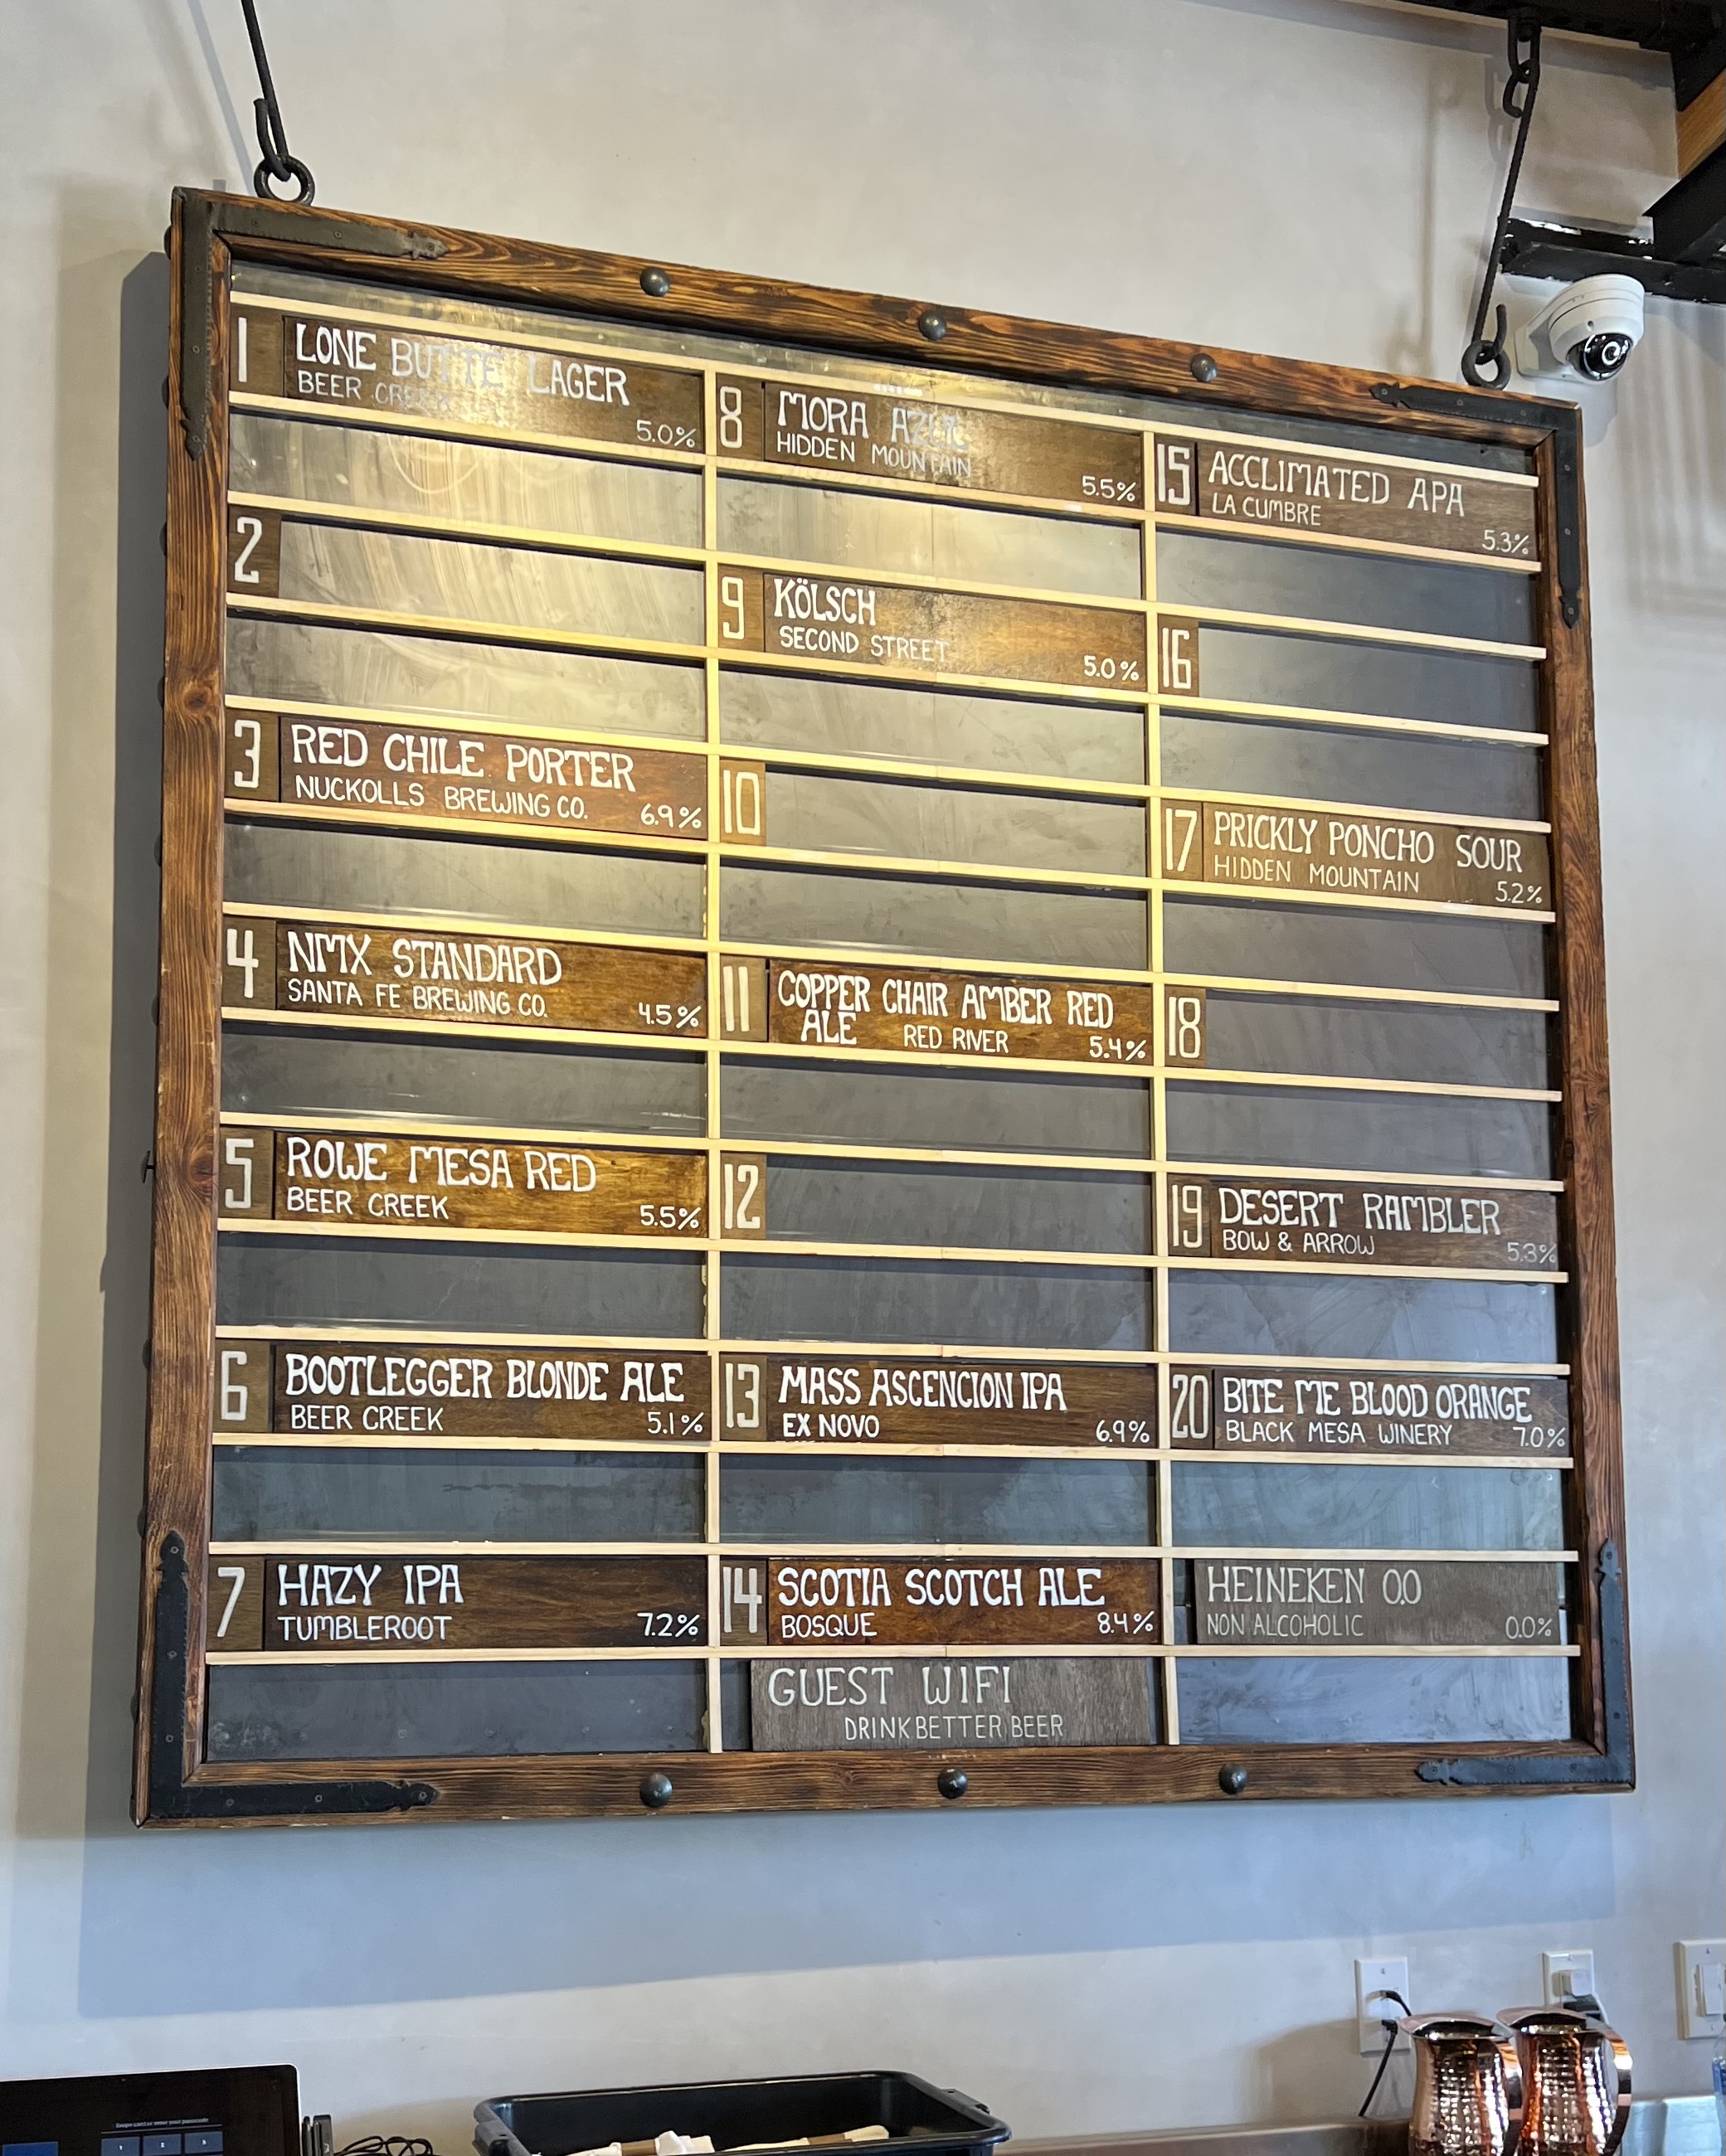 1 LONE BUTTE LAGER
BEER CREEK
5.0%
2
3 RED CHILE PORTER
NUCKOLLS BREWING CO. 6.9%
4 NMX STANDARD
SANTA FE BREWING CO. 4.5%
5 ROWE MESA RED
BEER CREEK 5.5%
6 BOOTLEGGER BLONDE ALE
BEER CREEK 5.1%
7 HAZY IPA
TUMBLEROOT 7.2%
8 MORA AZUL
HIDDEN MOUNTAIN
5.5%
9 KÖLSCH
SECOND STREET
5.0%
10
11 COPPER CHAIR AMBER RED
ALE RED RIVER 5.4%
12
13 MASS ASCENCION IPA
EX NOVO 6.9%
14 SCOTIA SCOTCH ALE
BOSQUE 8.4%
GUEST WIFI
DRINKBETTERBEER
15 ACCLIMATED APA
LA CUMBRE
5.3%
16
17 PRICKLY PONCHO SOUR
HIDDEN MOUNTAIN 5.2%
18
19 DESERT RAMBLER
BOW & ARROW 5.3%
20 BITE ME BLOOD ORANGE
BLACK MESA WINERY 7.0%
HEINEKEN 0.0
NON ALCOHOLIC 0.0%
1 2 3